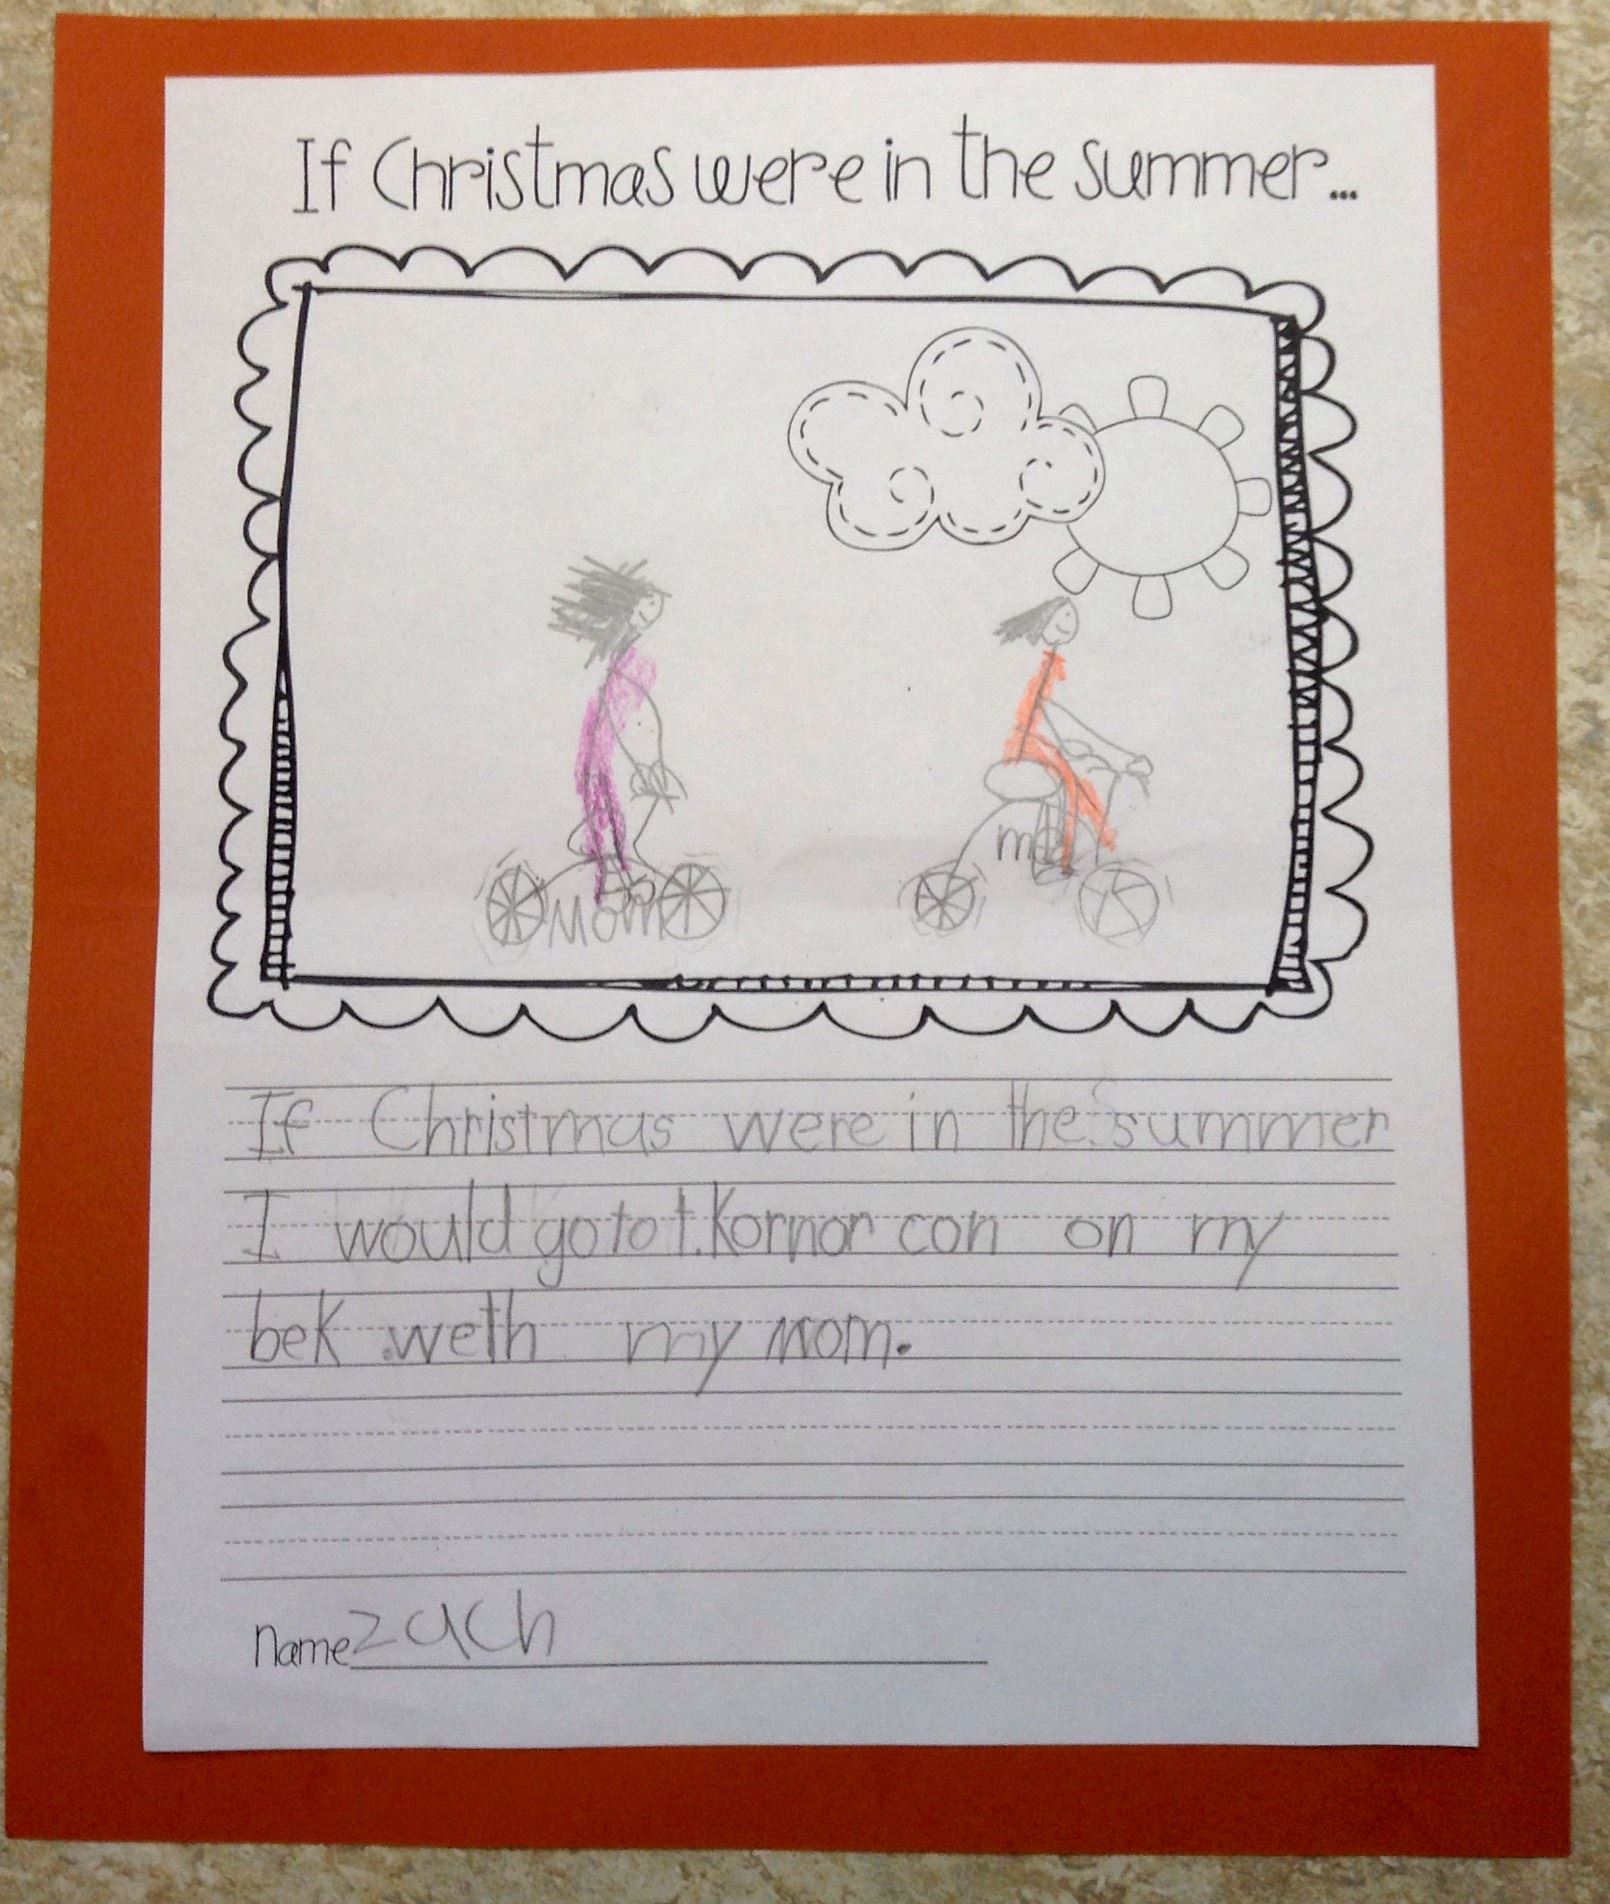 If Christmas were in the summer...
Mom
me
If Christmas were in the summer
I would go to t.Kornor con on my
bek weth my mom.
Name Zach